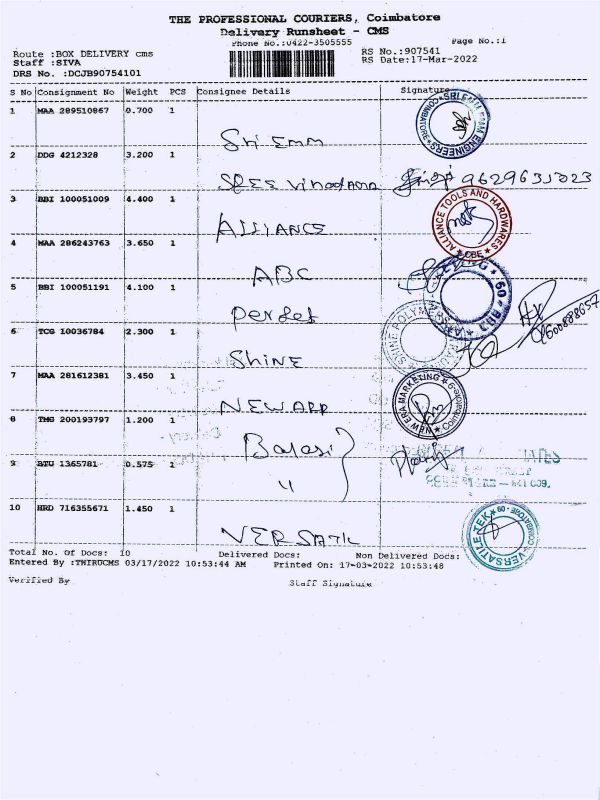 THE PROFESSIONAL COURIERS, Coimbatore
Delivery Runsheet - CMS
Phone No.:0422-3505555
Page No.:1
Route :BOX DELIVERY cms
RS No.:907541
Staff :SIVA
RS Date:17-Mar-2022
DRS No. :DCJB90754101
S No Consignment No Weight PCS Consignee Details Signature
1 MAA 289510867 0.700 1
Sri Emm
2 DDG 4212328 3.200 1
SREE
3 BBI 100051009 4.400 1
ALLIANCE
ALLIANCE TOOLS AND HARDWARES
CBE
4 MAA 286243763 3.650 1
ABC
5 BBI 100051191 4.100 1
Perfet
6 TCG 10036784 2.300 1
SHINE
7 MAA 281612381 3.450 1
NEW ARP
NEW ERA MARKETING
8 TMG 200193797 1.200 1
Balaji
9 BTU 1365781 0.575 1
"
10 HRD 716355671 1.450 1
VERSATIL
VERSATILE TEK
COIMBATORE - 09
Total No. Of Docs: 10 Delivered Docs: Non Delivered Docs:
Entered By :THIRUCMS 03/17/2022 10:53:44 AM Printed On: 17-03-2022 10:53:48
Verified By Staff Signature